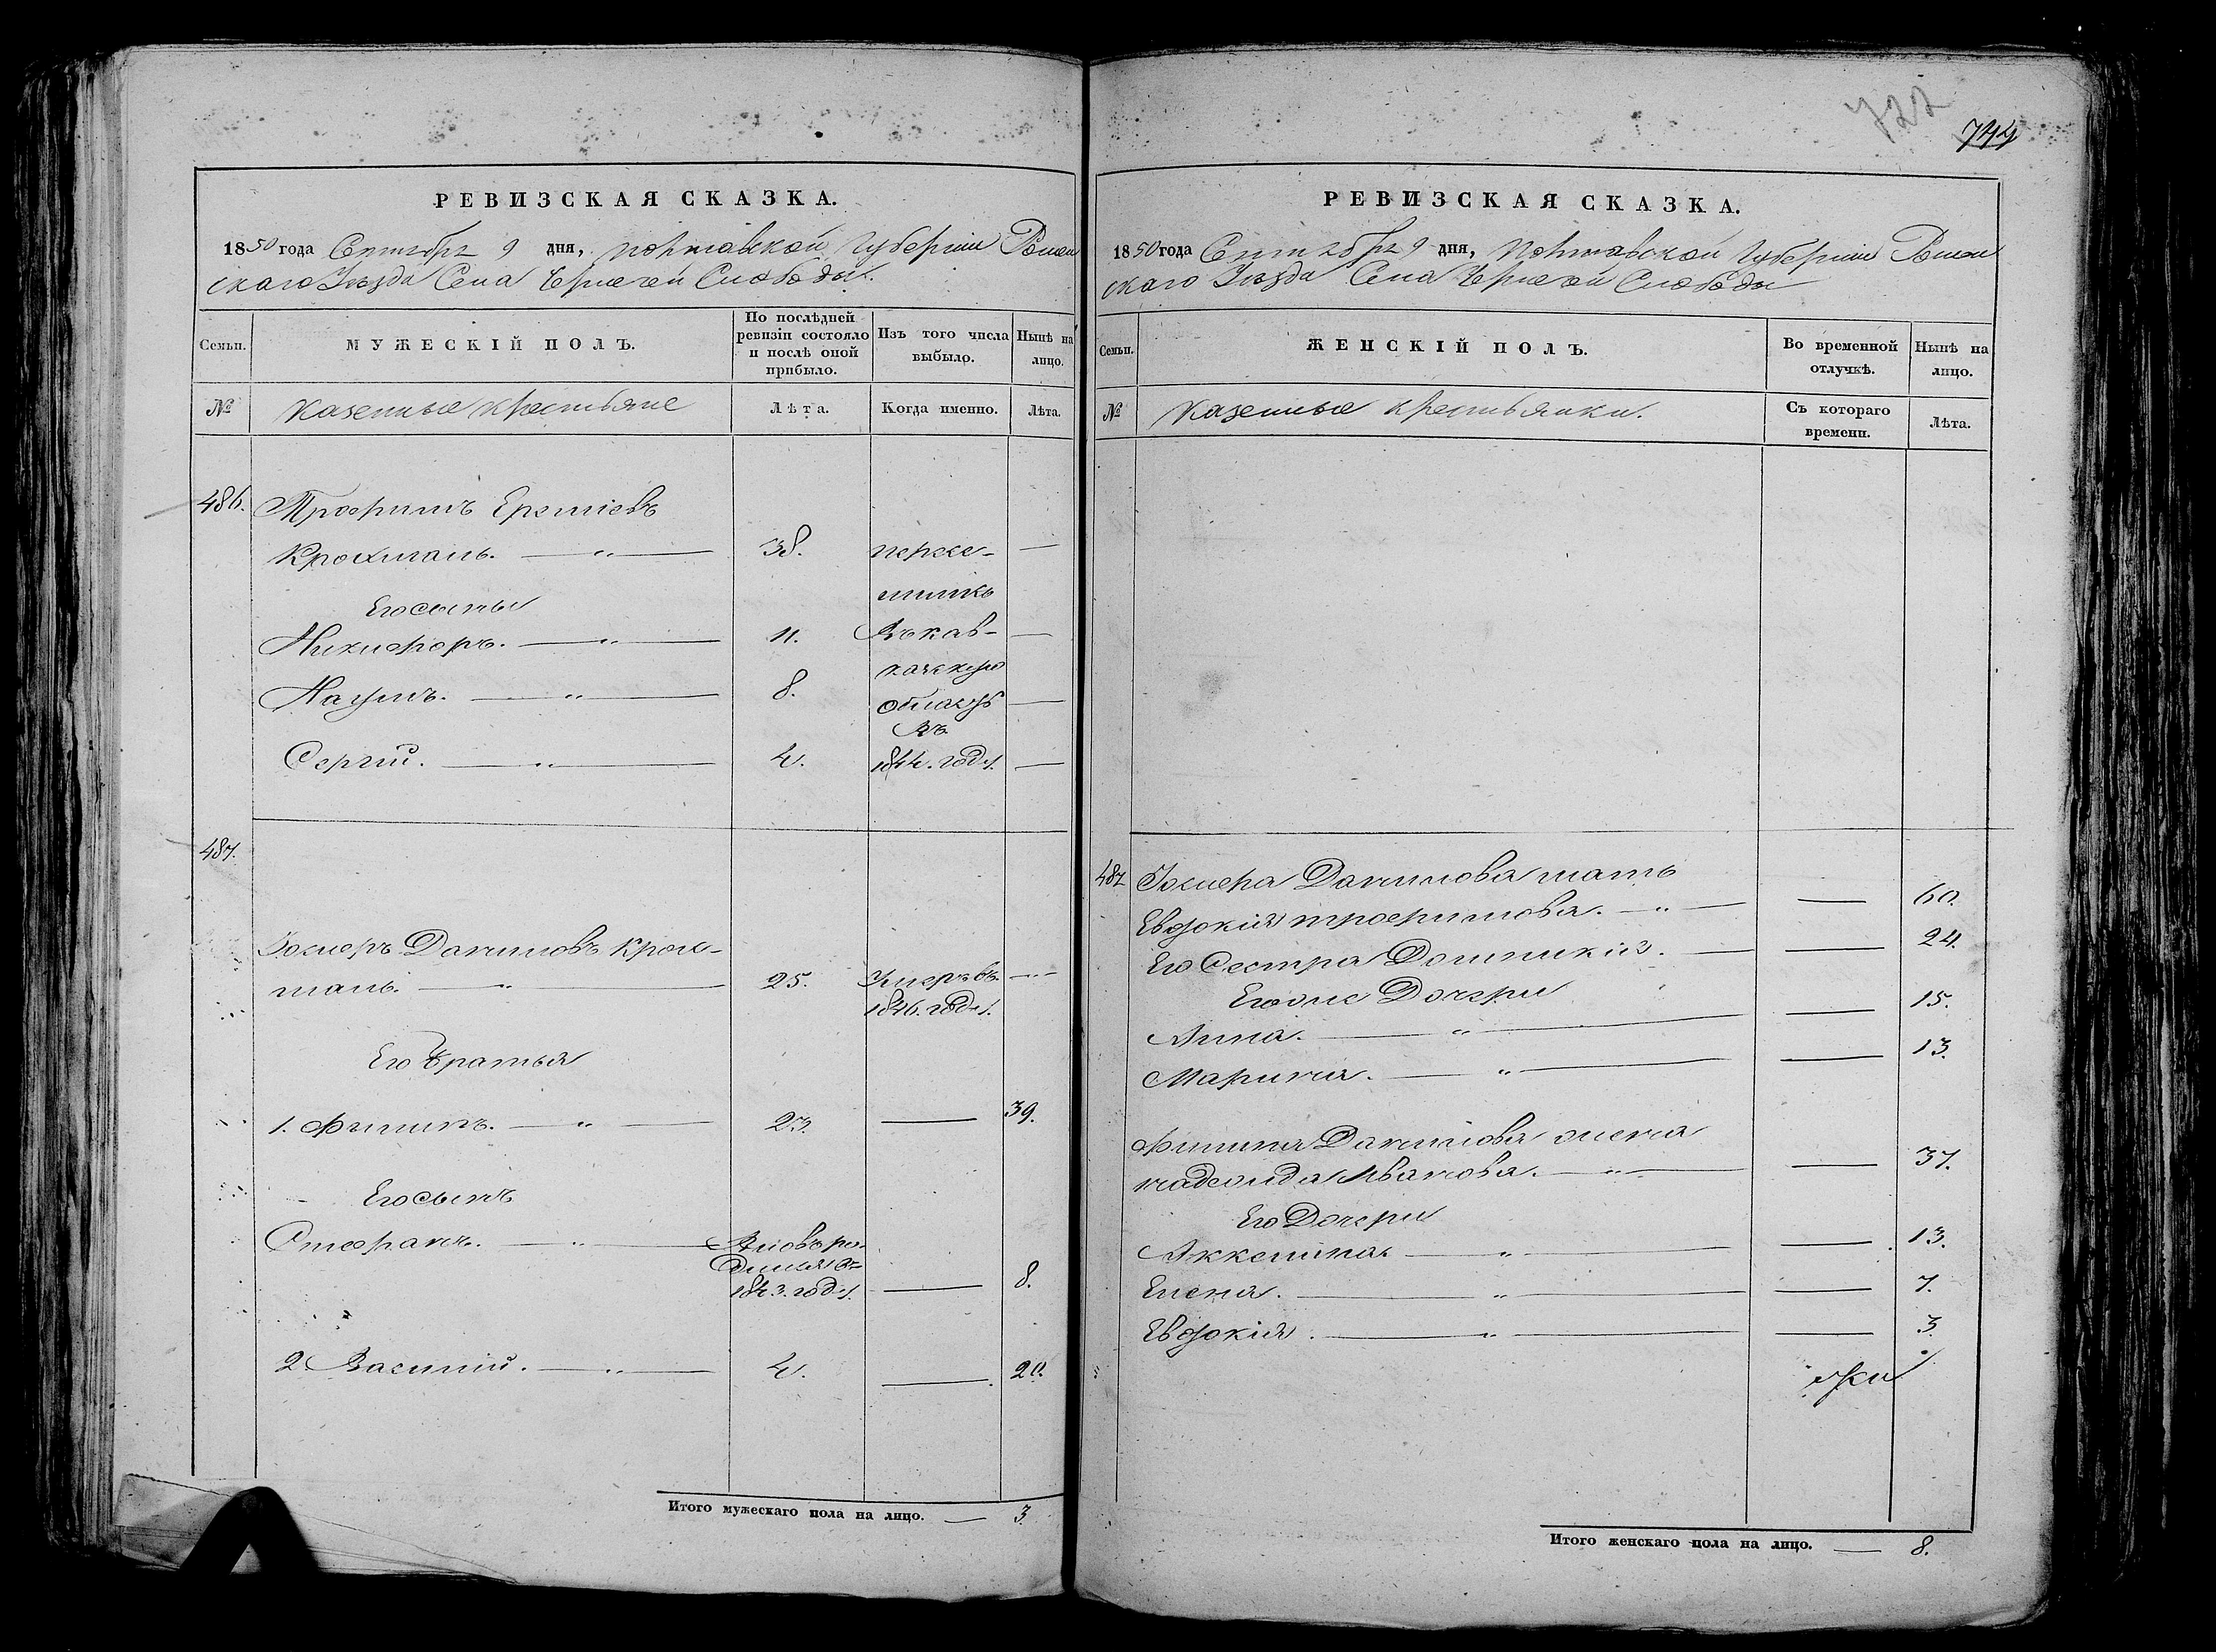 РЕВИЗСКАЯ СКАЗКА.
1850 года Сентября 9 дня, Полтавской Губернии Ромен
скаго Уѣзда Села Чернечей Слободы.
Семьи.
МУЖЕСКІЙ ПОЛЪ.
По послѣдней
ревизіи состояло
и послѣ оной
прибыло.
Изъ того числа
выбыло.
Нынѣ на
лицо.
№
Казенные крестьяне
Лѣта.
Когда именно.
Лѣта.
486. Трофимъ Еремѣевъ
38. пересе-
Его сыны
Никифоръ. 11. Въ кав-
казскую
Наумъ. 8. область
въ
Сергій. 4. 1844. году.
487.
Даниловъ
25. Умеръ въ
1846. году.
Его братья
1. Филипъ. 23. 39.
Его сынъ
Стефанъ. Вновь ро-
1843. году. 8.
2 Василій. 4. 20.
Итого мужескаго пола на лицо. 3.
722
744
РЕВИЗСКАЯ СКАЗКА.
1850 года Сентября 9 дня, Полтавской Губерніи Ромен
скаго Уѣзда Села Чернечей Слободы
Семьи.
ЖЕНСКІЙ ПОЛЪ.
Во временной
отлучкѣ.
Нынѣ на
лицо.
№
Казенные крестьянки.
Съ котораго
времени.
Лѣта.
487 Данилова мать
Евдокія Трофимова. 60.
Его Сестра Домникія. 24.
Его же Дочери
Анна. 15.
Марина. 13.
Филипа Данилова жена
Иванова. 37.
Его Дочери
Аккелина. 13.
Елена. 7.
Евдокія. 3.
Итого женскаго пола на лицо. 8.